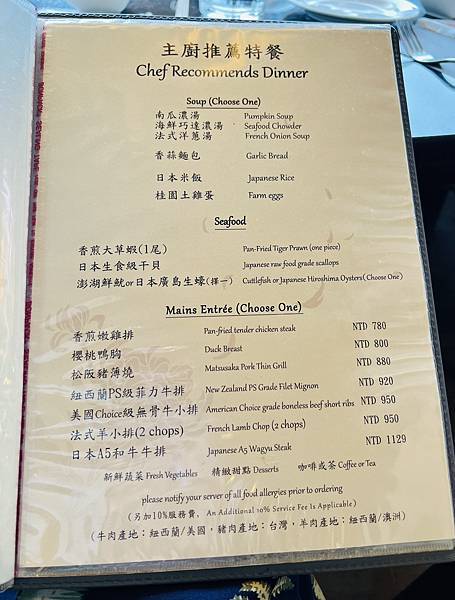 主廚推薦特餐
Chef Recommends Dinner
Soup (Choose One)
南瓜濃湯 Pumpkin Soup
海鮮巧達濃湯 Seafood Chowder
法式洋蔥湯 French Onion Soup
香蒜麵包 Garlic Bread
日本米飯 Japanese Rice
桂園土雞蛋 Farm eggs
Seafood
香煎大草蝦(1尾) Pan-Fried Tiger Prawn (one piece)
日本生食級干貝 Japanese raw food grade scallops
澎湖鮮魷or日本廣島生蠔(擇一) Cuttlefish or Japanese Hiroshima Oysters(Choose One)
Mains Entrée (Choose One)
香煎嫩雞排 Pan-fried tender chicken steak NTD 780
櫻桃鴨胸 Duck Breast NTD 800
松阪豬薄燒 Matsusaka Pork Thin Grill NTD 880
紐西蘭PS級菲力牛排 New Zealand PS Grade Filet Mignon NTD 920
美國Choice級無骨牛小排 American Choice grade boneless beef short ribs NTD 950
法式羊小排(2 chops) French Lamb Chop (2 chops) NTD 950
日本A5和牛牛排 Japanese A5 Wagyu Steak NTD 1129
新鮮蔬菜 Fresh Vegetables 精緻甜點 Desserts 咖啡或茶 Coffee or Tea
please notify your server of all food allergies prior to ordering
(另加10%服務費, An Additional 10% Service Fee Is Applicable)
(牛肉產地：紐西蘭/美國，豬肉產地：台灣，羊肉產地：紐西蘭/澳洲)